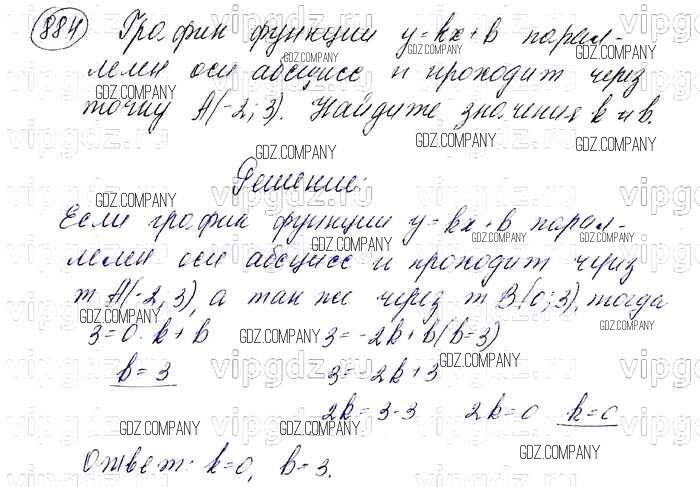 884 График функции y=kx+b парал-
лелен оси абсцисс и проходит через
точку A(-2; 3). Найдите значения k и b.
Решение:
Если график функции y=kx+b парал-
лелен оси абсцисс и проходит через
т A(-2, 3), а так же через т B(0; 3), тогда
3=0·k+b 3=-2k+b (b=3)
b=3 3=-2k+3
2k=3-3 2k=0 k=0
Ответ: k=0, b=3.
GDZ.COMPANY
vipgdz.ru